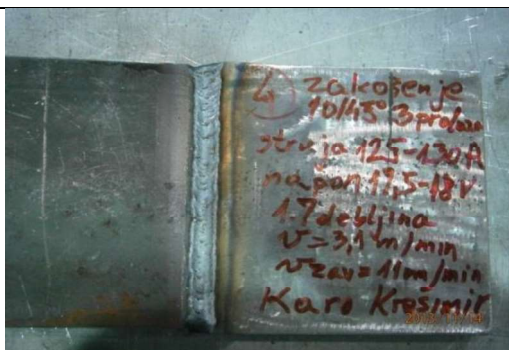 4 zakošenje
10/45° 3 prolaza
struja 125-130A
napon 17,5-18V
1.7 debljina
v=3,1 m/min
v zav = 11 m/min
Karo Kresimir